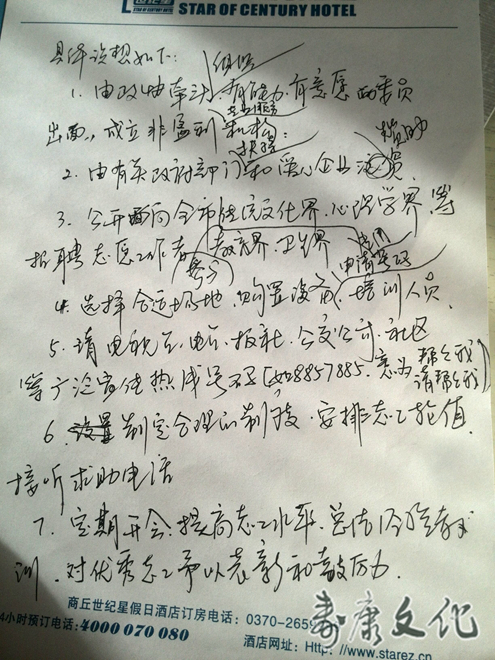 STAR OF CENTURY HOTEL
STAR OF CENTURY HOTEL
具体设想如下:
组织
1. 由政协牵头,有能力、有意愿的委员
专业服务
出面,成立非盈利机构;
扶持
捐助
2. 由有关政府部门和爱心企业
3. 公开面向全市传统文化界、心理学界、等
招聘志愿工作者 教育界、卫生界
部分
申请号码
4. 选择合适场地,购置设备,培训人员.
5. 请电视台、电台、报社、公交公司、社区
等广泛宣传热线号码(如8857885.意为帮帮我
请帮帮我)
6. 设置 制定合理的制度,安排志工轮值.
接听求助电话
7. 定期开会.提高志工水平.总结经验教
训.对优秀志工予以表彰和鼓励.
商丘世纪星假日酒店订房电话: 0370-2659
4小时预订电话:4000070080
酒店网址: Http: //www.starez.cn
寿康文化